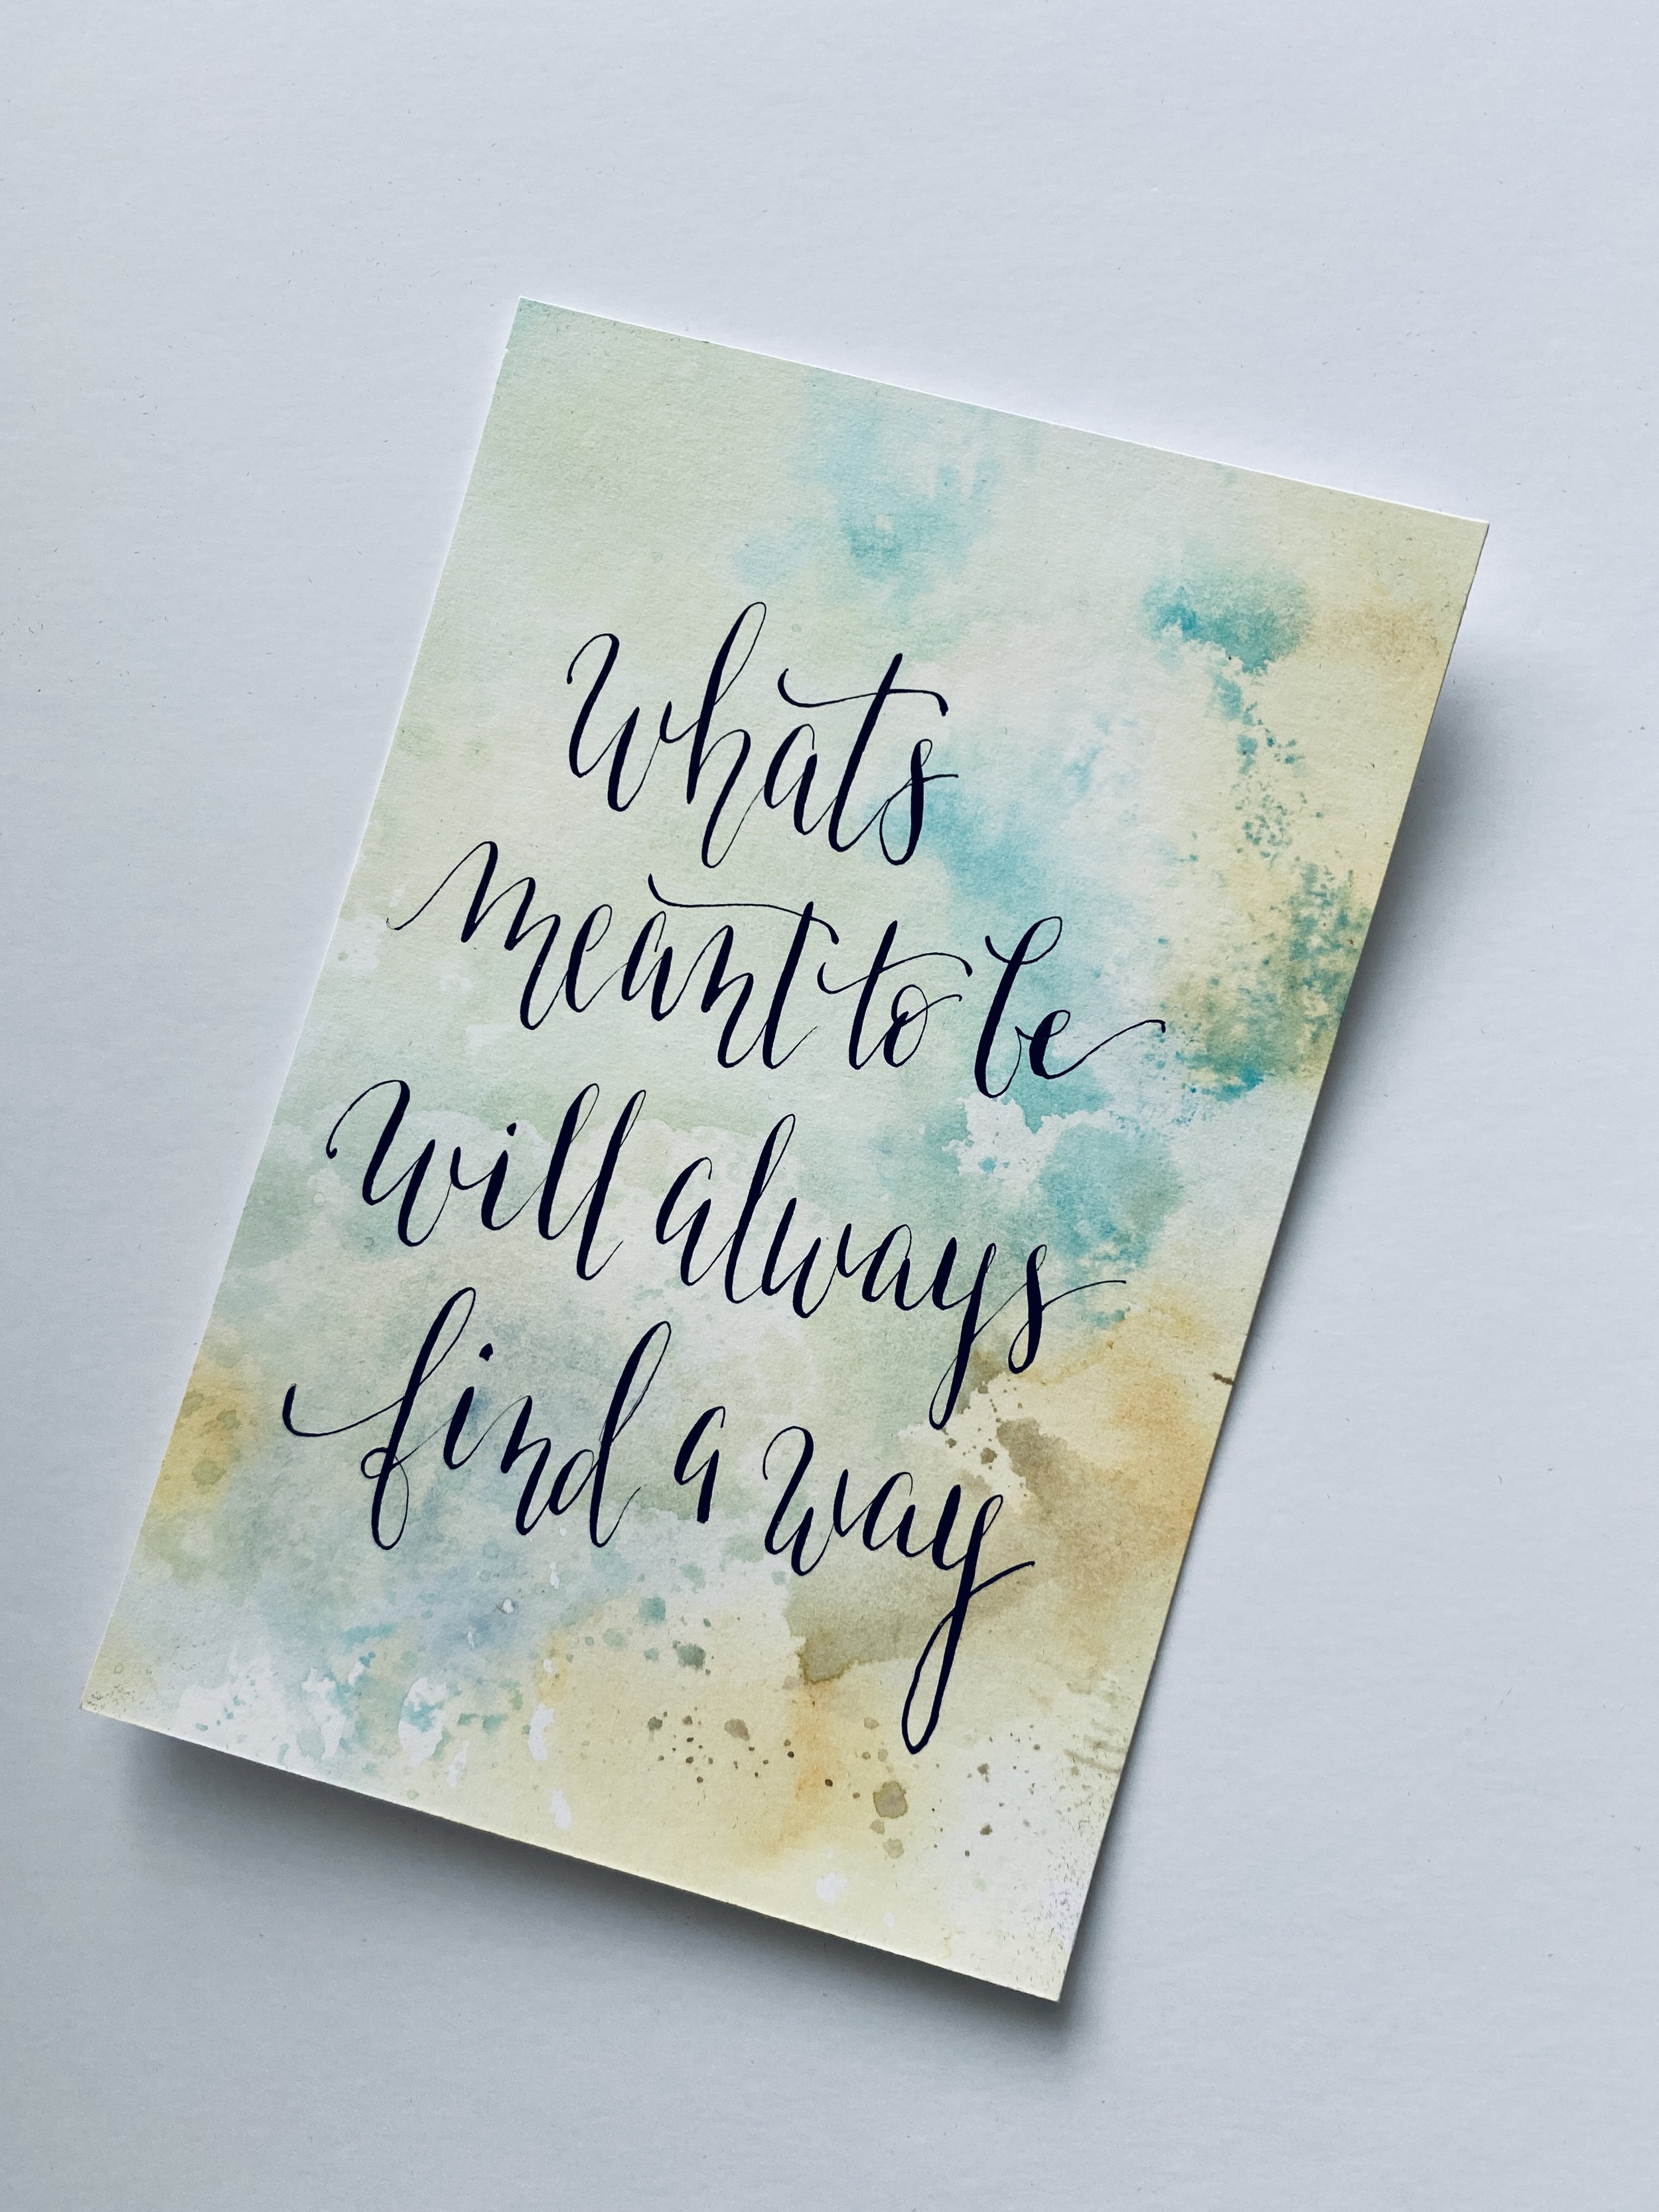 whats
meant to be
will always
find a way